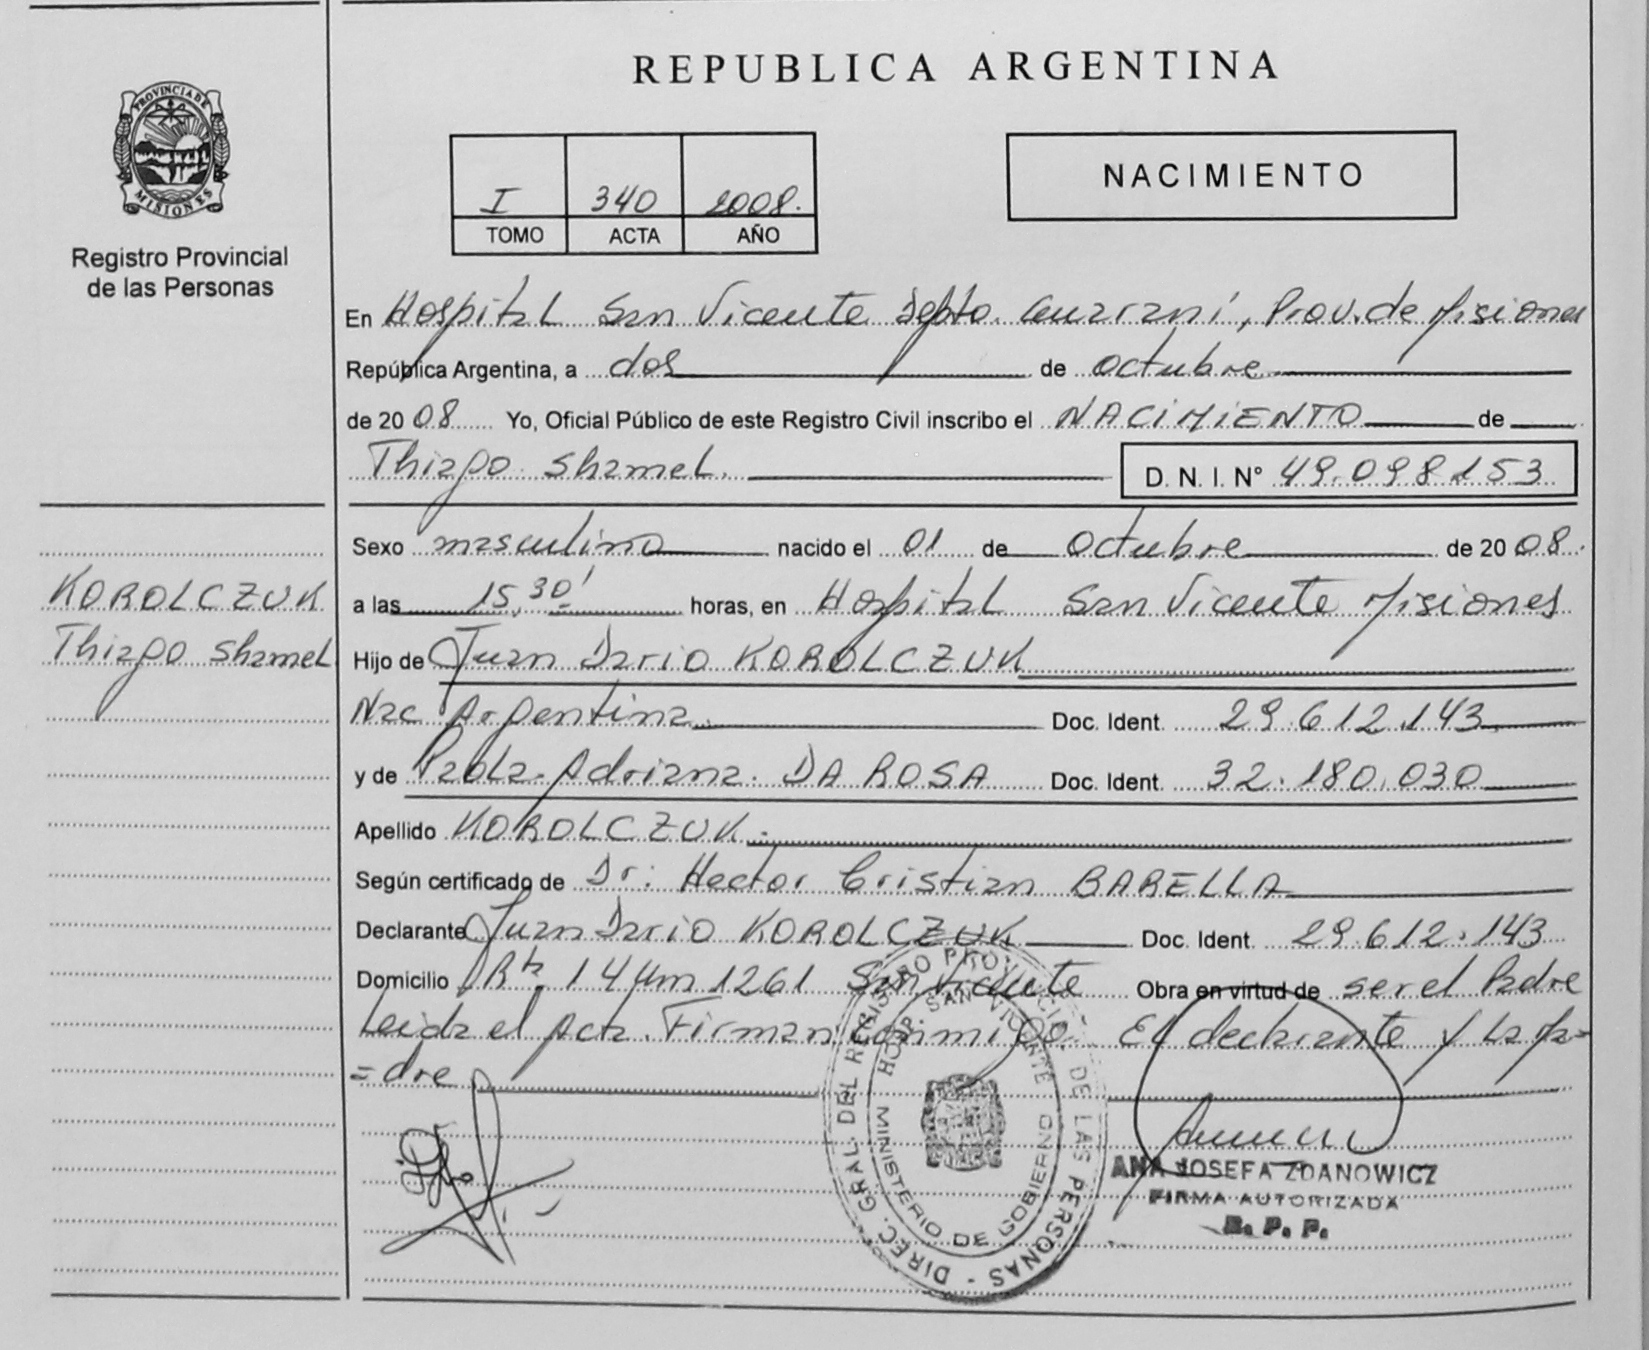 PROVINCIA DE
MISIONES
Registro Provincial
de las Personas
KOROLCZUK
Thiago Shamel
REPUBLICA ARGENTINA
I 340 2008.
TOMO ACTA AÑO
NACIMIENTO
En Hospital San Vicente Depto. Guaraní, Prov. de Misiones
República Argentina, a dos de octubre
de 2008 Yo, Oficial Público de este Registro Civil inscribo el NACIMIENTO de
Thiago Shamel. D. N. I. N° 49.098.153
Sexo masculino nacido el 01 de octubre de 2008.
a las 15,30' horas, en Hospital San Vicente Misiones
Hijo de Juan Dario KOROLCZUK
Nac Argentina. Doc. Ident. 29.612.143
y de Paola Adriana DA ROSA Doc. Ident. 32.180.030
Apellido KOROLCZUK.
Según certificado de Dr: Hector Cristian BARELLA
Declarante Juan Dario KOROLCZUK Doc. Ident. 29.612.143
Domicilio Rta. 14 Km 1261 San Vicente Obra en virtud de ser el Padre
Leida el Acta. Firman conmigo El declarante y La Ma=
=dre
DIREC. GRAL. DEL REGISTRO PROVINCIAL DE LAS PERSONAS -
HOSP. SAN VICENTE
MINISTERIO DE GOBIERNO
ANA JOSEFA ZDANOWICZ
FIRMA AUTORIZADA
R. P. P.